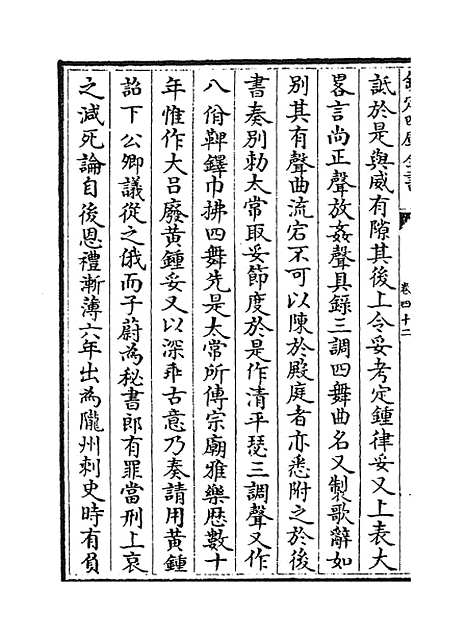 欽定四庫全書
卷四十二
詆於是與威有隙其後上令妥考定鍾律妥又上表大
畧言尚正聲放姦聲具録三調四舞曲名又製歌辭如
别其有聲曲流宕不可以陳於殿庭者亦悉附之於後
書奏别勅太常取妥節度於是作清平瑟三調聲又作
八佾鞞鐸巾拂四舞先是太常所傳宗廟雅樂歴數十
年惟作大吕廢黄鍾妥又以深乖古意乃奏請用黄鍾
詔下公卿議從之俄而子蔚為秘書郎有罪當刑上哀
之減死論自後恩禮漸薄六年出為隴州刺史時有負